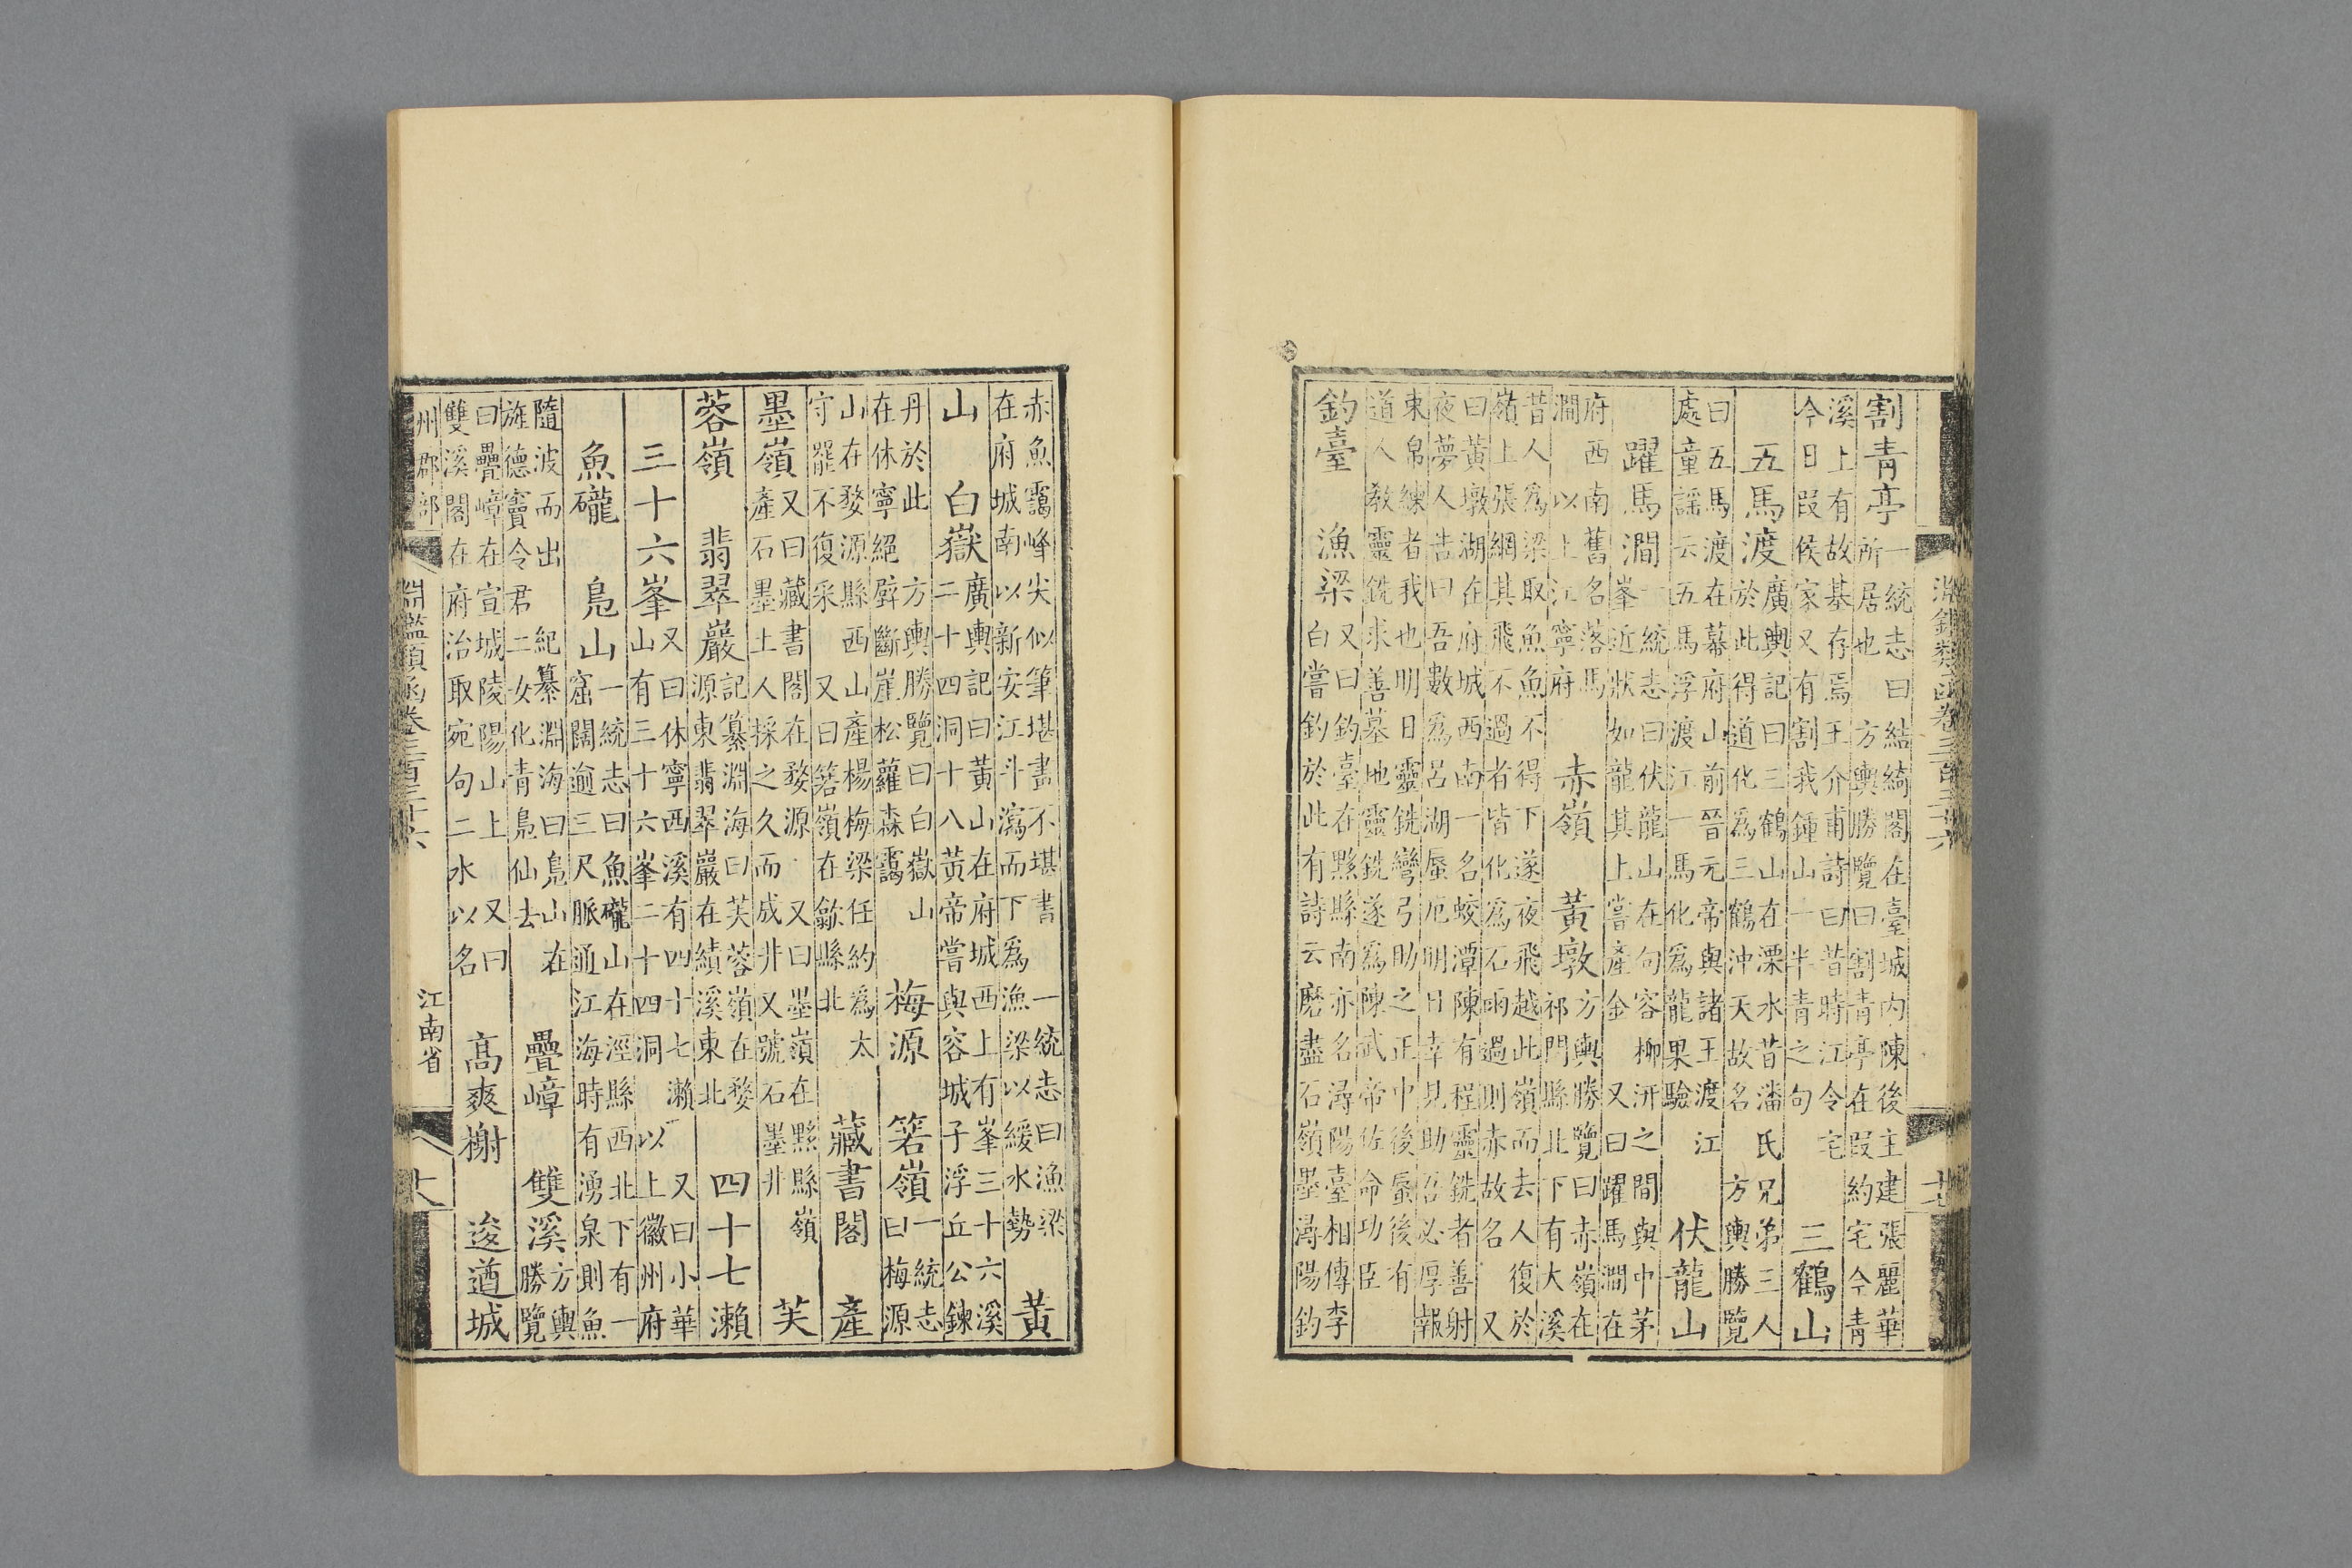 淵鑑類函卷三百三十六
割青亭 一統志曰結綺閣在臺城内陳後主建張麗華
所居也 方輿勝覽曰割青亭在叚約宅今青
溪上有故基存焉王介甫詩曰昔時江令宅
今日叚侯家又有割我鍾山一半青之句 三鶴山
五馬渡 廣輿記曰三鶴山在溧水昔潘氏兄弟三人
於此得道化爲三鶴沖天故名 方輿勝覽
曰五馬渡在幕府山前晉元帝與諸王渡江
處童謡云五馬浮渡江一馬化爲龍果驗 伏龍山
躍馬澗 一統志曰伏龍山在句容柳汧之間與中茅
峯近狀如龍其上嘗產金 又曰躍馬澗在
府西南舊名落馬
澗 以上江寧府 赤嶺 黃墩 方輿勝覽曰赤嶺在
祁門縣北下有大溪
昔人爲梁取魚魚不得下遂夜飛越此嶺而去人復於
嶺上張網其飛不過者皆化爲石雨過則赤故名 又
曰黃墩湖在府城西南一名蛟潭陳有程靈銑者善射
夜夢人告曰吾數爲呂湖蜃厄明日幸見助吾必厚報
束帛練者我也明日靈銑彎弓助之正中後蜃後有
道人教靈銑求善墓地靈銑遂爲陳武帝佐命功臣
釣臺 漁梁 又曰釣臺在黟縣南亦名潯陽臺相傳李
白嘗釣於此有詩云磨盡石嶺墨潯陽釣
赤魚靄峰尖似筆堪畫不堪書 一統志曰漁梁
在府城南以新安江斗瀉而下爲漁梁以緩水勢 黃
山 白嶽 廣輿記曰黃山在府城西上有峯三十六溪
二十四洞十八黃帝嘗與容城子浮丘公鍊
丹於此 方輿勝覽曰白嶽山
在休寧絕壁斷崖松蘿森靄 梅源 箬嶺 一統志
曰梅源
山在婺源縣西山產楊梅梁任約爲太
守罷不復采 又曰箬嶺在歙縣北 藏書閣 產
墨嶺 又曰藏書閣在婺源 又曰墨嶺在黟縣嶺
產石墨土人採之久而成井又號石墨井 芙
蓉嶺 翡翠巖 記纂淵海曰芙蓉嶺在婺
源東翡翠巖在績溪東北 四十七瀨
三十六峯 又曰休寧西溪有四十七瀨 又曰小華
山有三十六峯二十四洞 以上徽州府
魚䃧 鳧山 一統志曰魚䃧山在涇縣西北下有一
窟闊逾三尺脈通江海時有湧泉則魚
隨波而出 紀纂淵海曰鳧山在
旌德竇令君二女化青鳧仙去 疊嶂 雙溪 方輿
勝覽
曰疊嶂在宣城陵陽山上 又曰
雙溪閣在府治取宛句二水以名 高爽榭 逡遒城
州郡部 淵鑑類函卷三百三十六 江南省